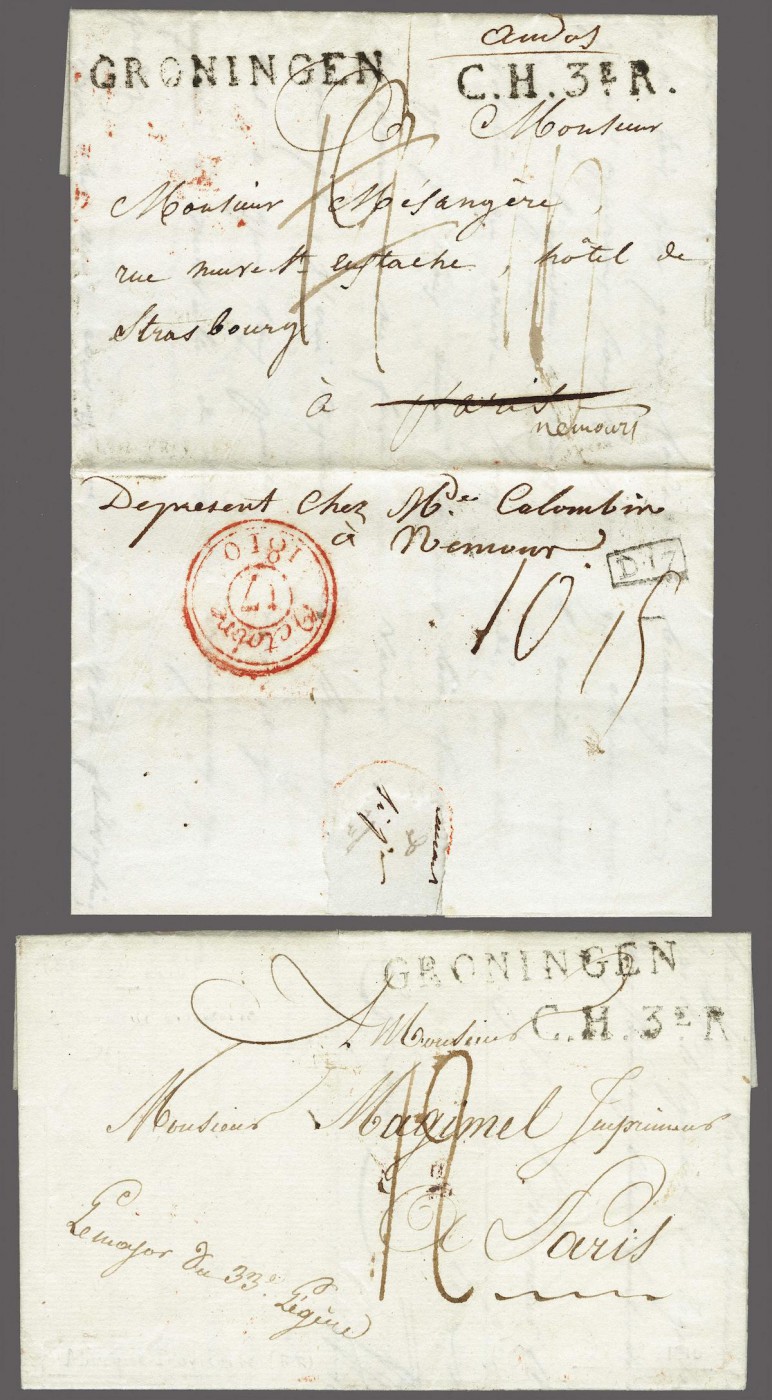 GRONINGEN
C.H.3E R.
Monsieur
Monsieur Mésangère,
rue St. eustache, hôtel de
Strasbourg
à Paris
nemours
Depresent Chez Mde. Colombin
à Nemour.
1810
17
Octobre
D.17
10 15
GRONINGEN
C.H.3E R
A Monsieur
Monsieur Magimel Imprimeur
12
A Paris
Le major du 33e. Légère